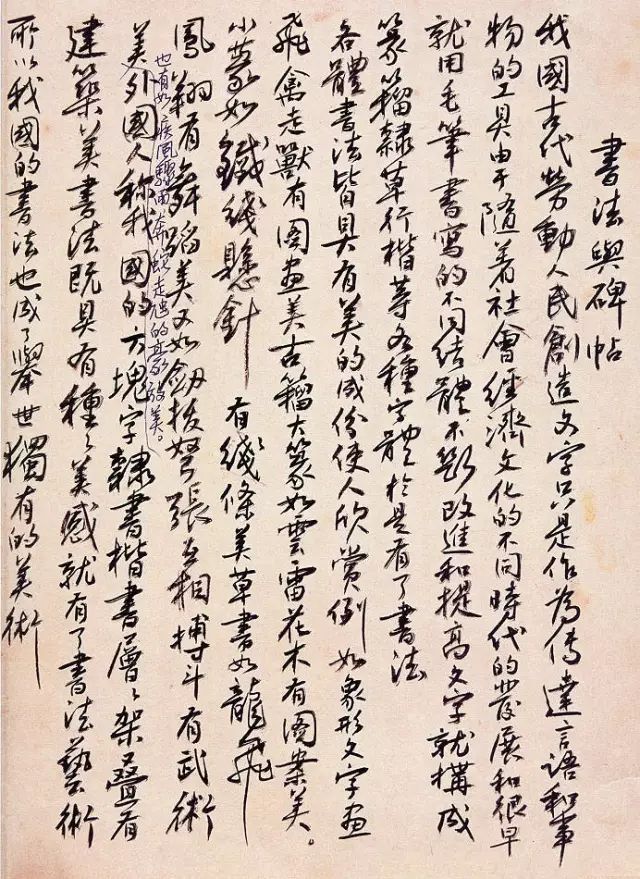 書法與碑帖
我國古代勞動人民創造文字只是作為傳達言語和事
物的工具由于隨着社會經濟文化的不同時代的發展和很早
就用毛筆書寫的不同结體不断改進和提高文字就構成
篆籀隸草行楷等各種字體於是有了書法
各體書法皆具有美的成份使人欣賞例如象形文字畫
飛禽走獸有图畫美古籀大篆如雲雷花木有图案美。
小篆如鐵綫懸針有綫條美草書如龍飛
鳳翔有舞蹈美又如劍拔弩張互相搏斗有武術
也有如疾風驟雨奔蛇走的美。
美外國人称我國的方塊字隸書楷書層々架疊有
建築美書法既具有種々美感就有了書法藝術
所以我國的書法也成了舉世獨有的美術